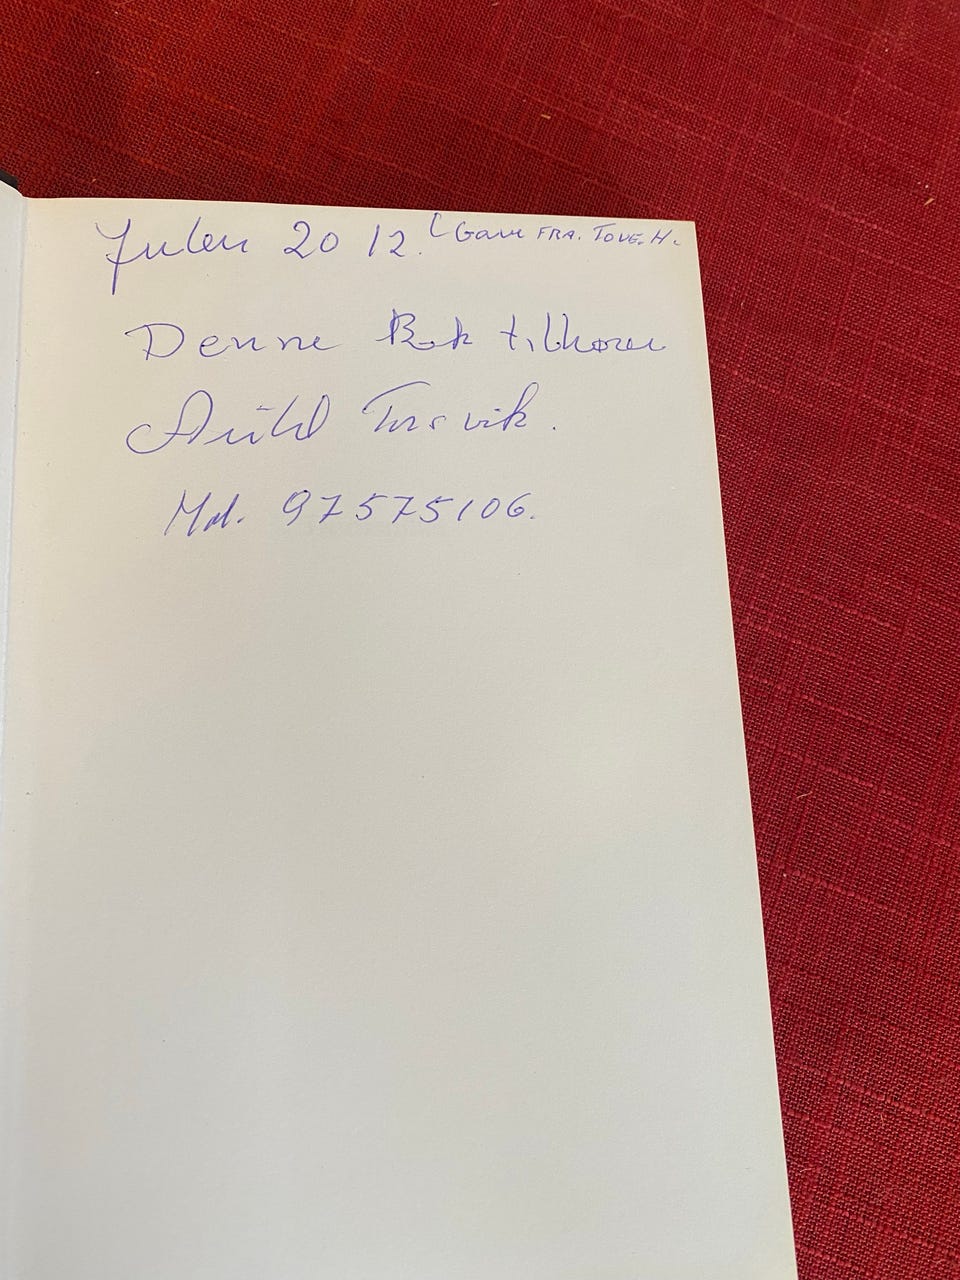 Julen 2012. (Gave FRA. TOVE. H.
Denne Bok tilhører
Torsvik.
Mob. 97575106.